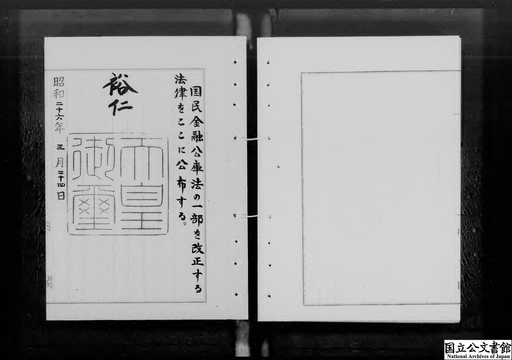 国民金融公庫法の一部を改正する
法律をここに公布する。
裕仁
天皇
御璽
昭和二十六年 三月二十四日
国立公文書館
National Archives of Japan